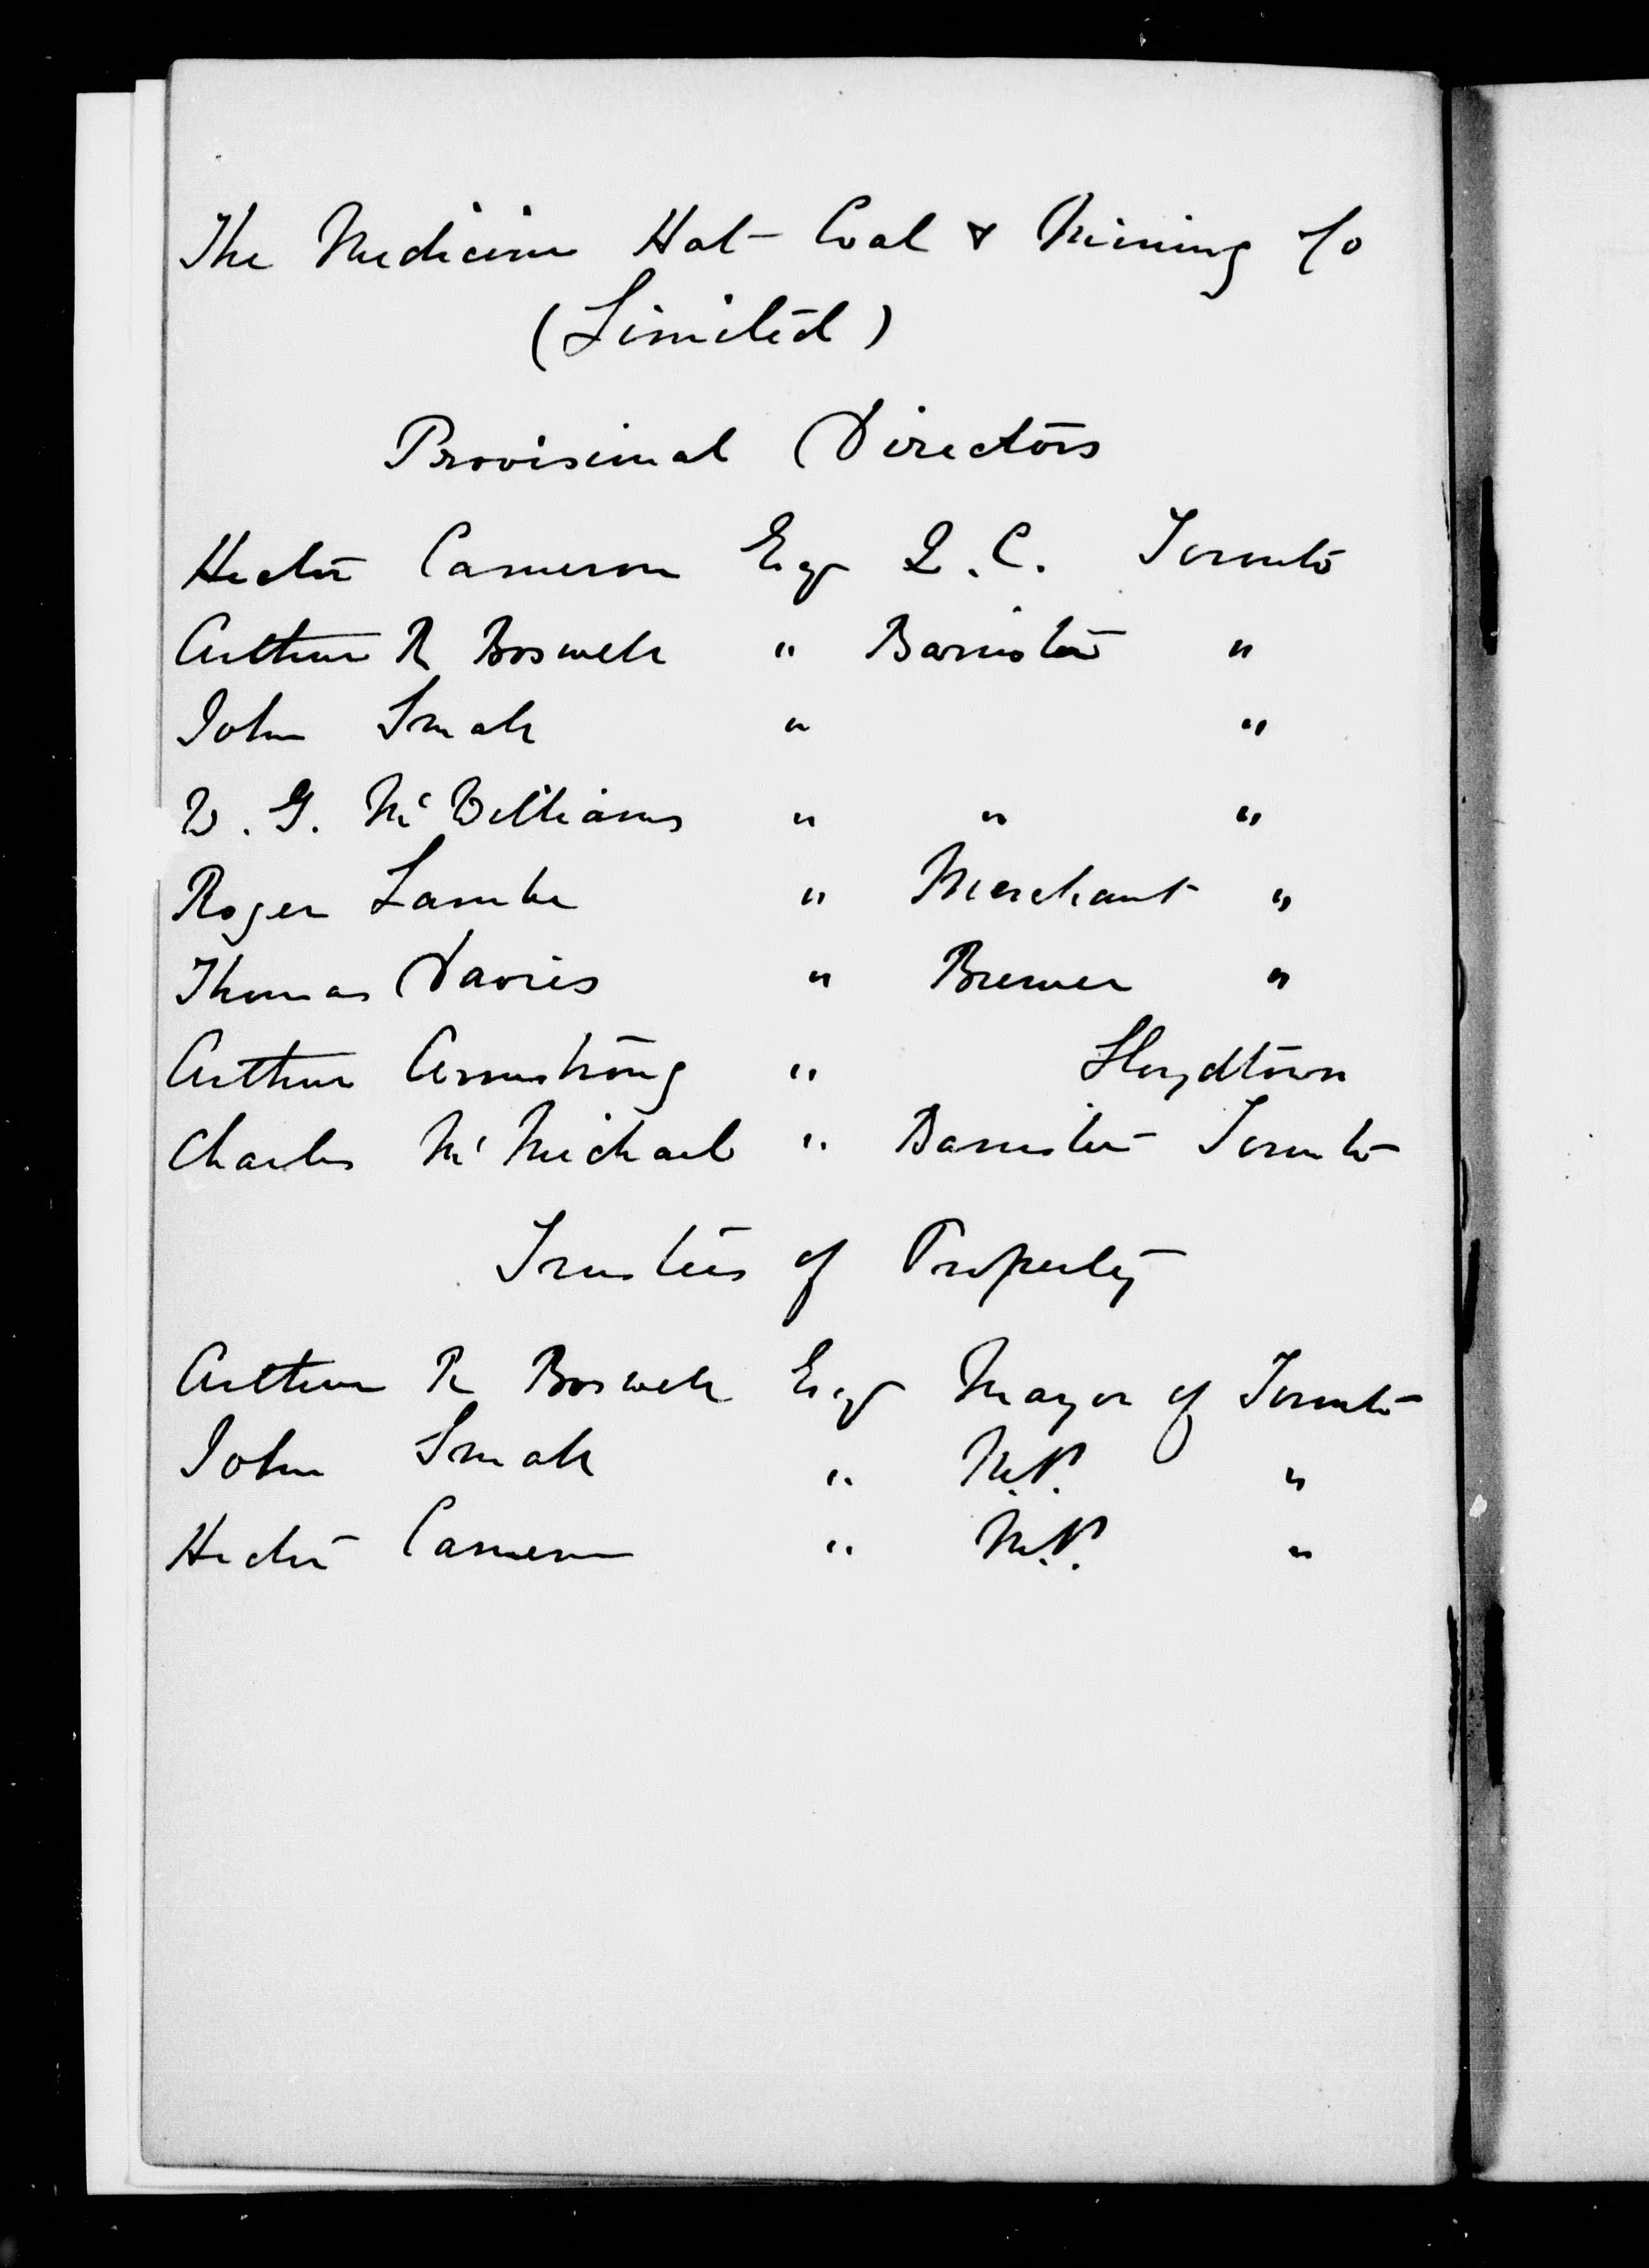 The Medicine Hat Coal & Mining Co
(Limited)
Provisional Directors
Hector Cameron Esq Q.C. Toronto
Arthur R Boswell " Barrister "
John Small " "
W. G. McWilliams " " "
Roger Lambe " Merchant "
Thomas Davies " Brewer "
Arthur Armstrong " Lloydtown
Charles McMichael " Barrister Toronto
Trustees of Property
Arthur R Boswell Esq Mayor of Toronto
John Small " M.P. "
Hector Cameron " M.P. "